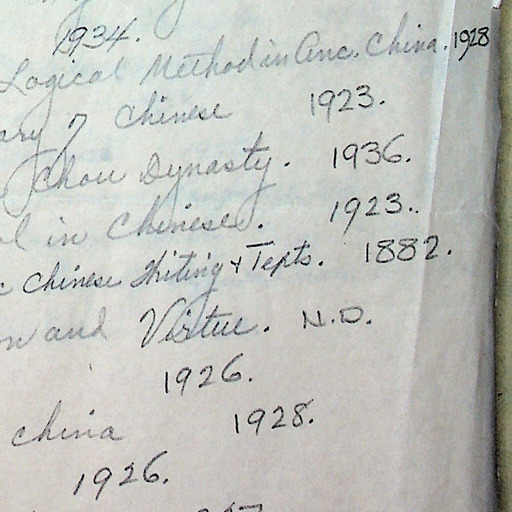 1934.
Logical Method in Anc. China. 1928
ary of Chinese 1923.
Chou Dynasty. 1936.
l in Chinese. 1923.
c Chinese Writing & Texts. 1882.
n and Virtue. N.D.
1926.
China 1928.
1926.